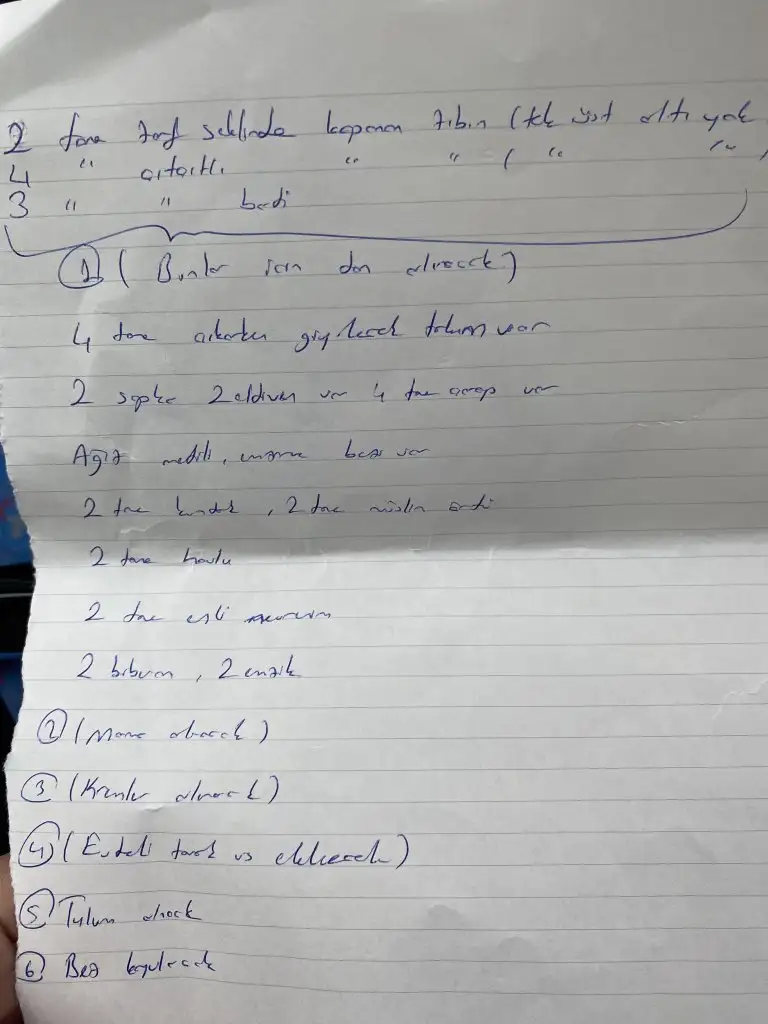 2 tane zarf şeklinde kapanan zıbın (tek üst altı yok
4 " çıtçıtlı " " ( " "
3 " " badi
① (Bunlar için don alınacak)
4 tane çıkarken giyilecek tulum var
2 şapka 2 eldiven var 4 tane çorap var
Ağız mendili, emzirme bezi var
2 tane kundak, 2 tane müslin örtü
2 tane havlu
2 tane
2 biberon, 2 emzik
② (Mama alınacak)
③ (Kremler alınacak)
④ (Evdeki tarak vs eklenecek)
⑤ Tulum alınacak
⑥ Bez koyulacak